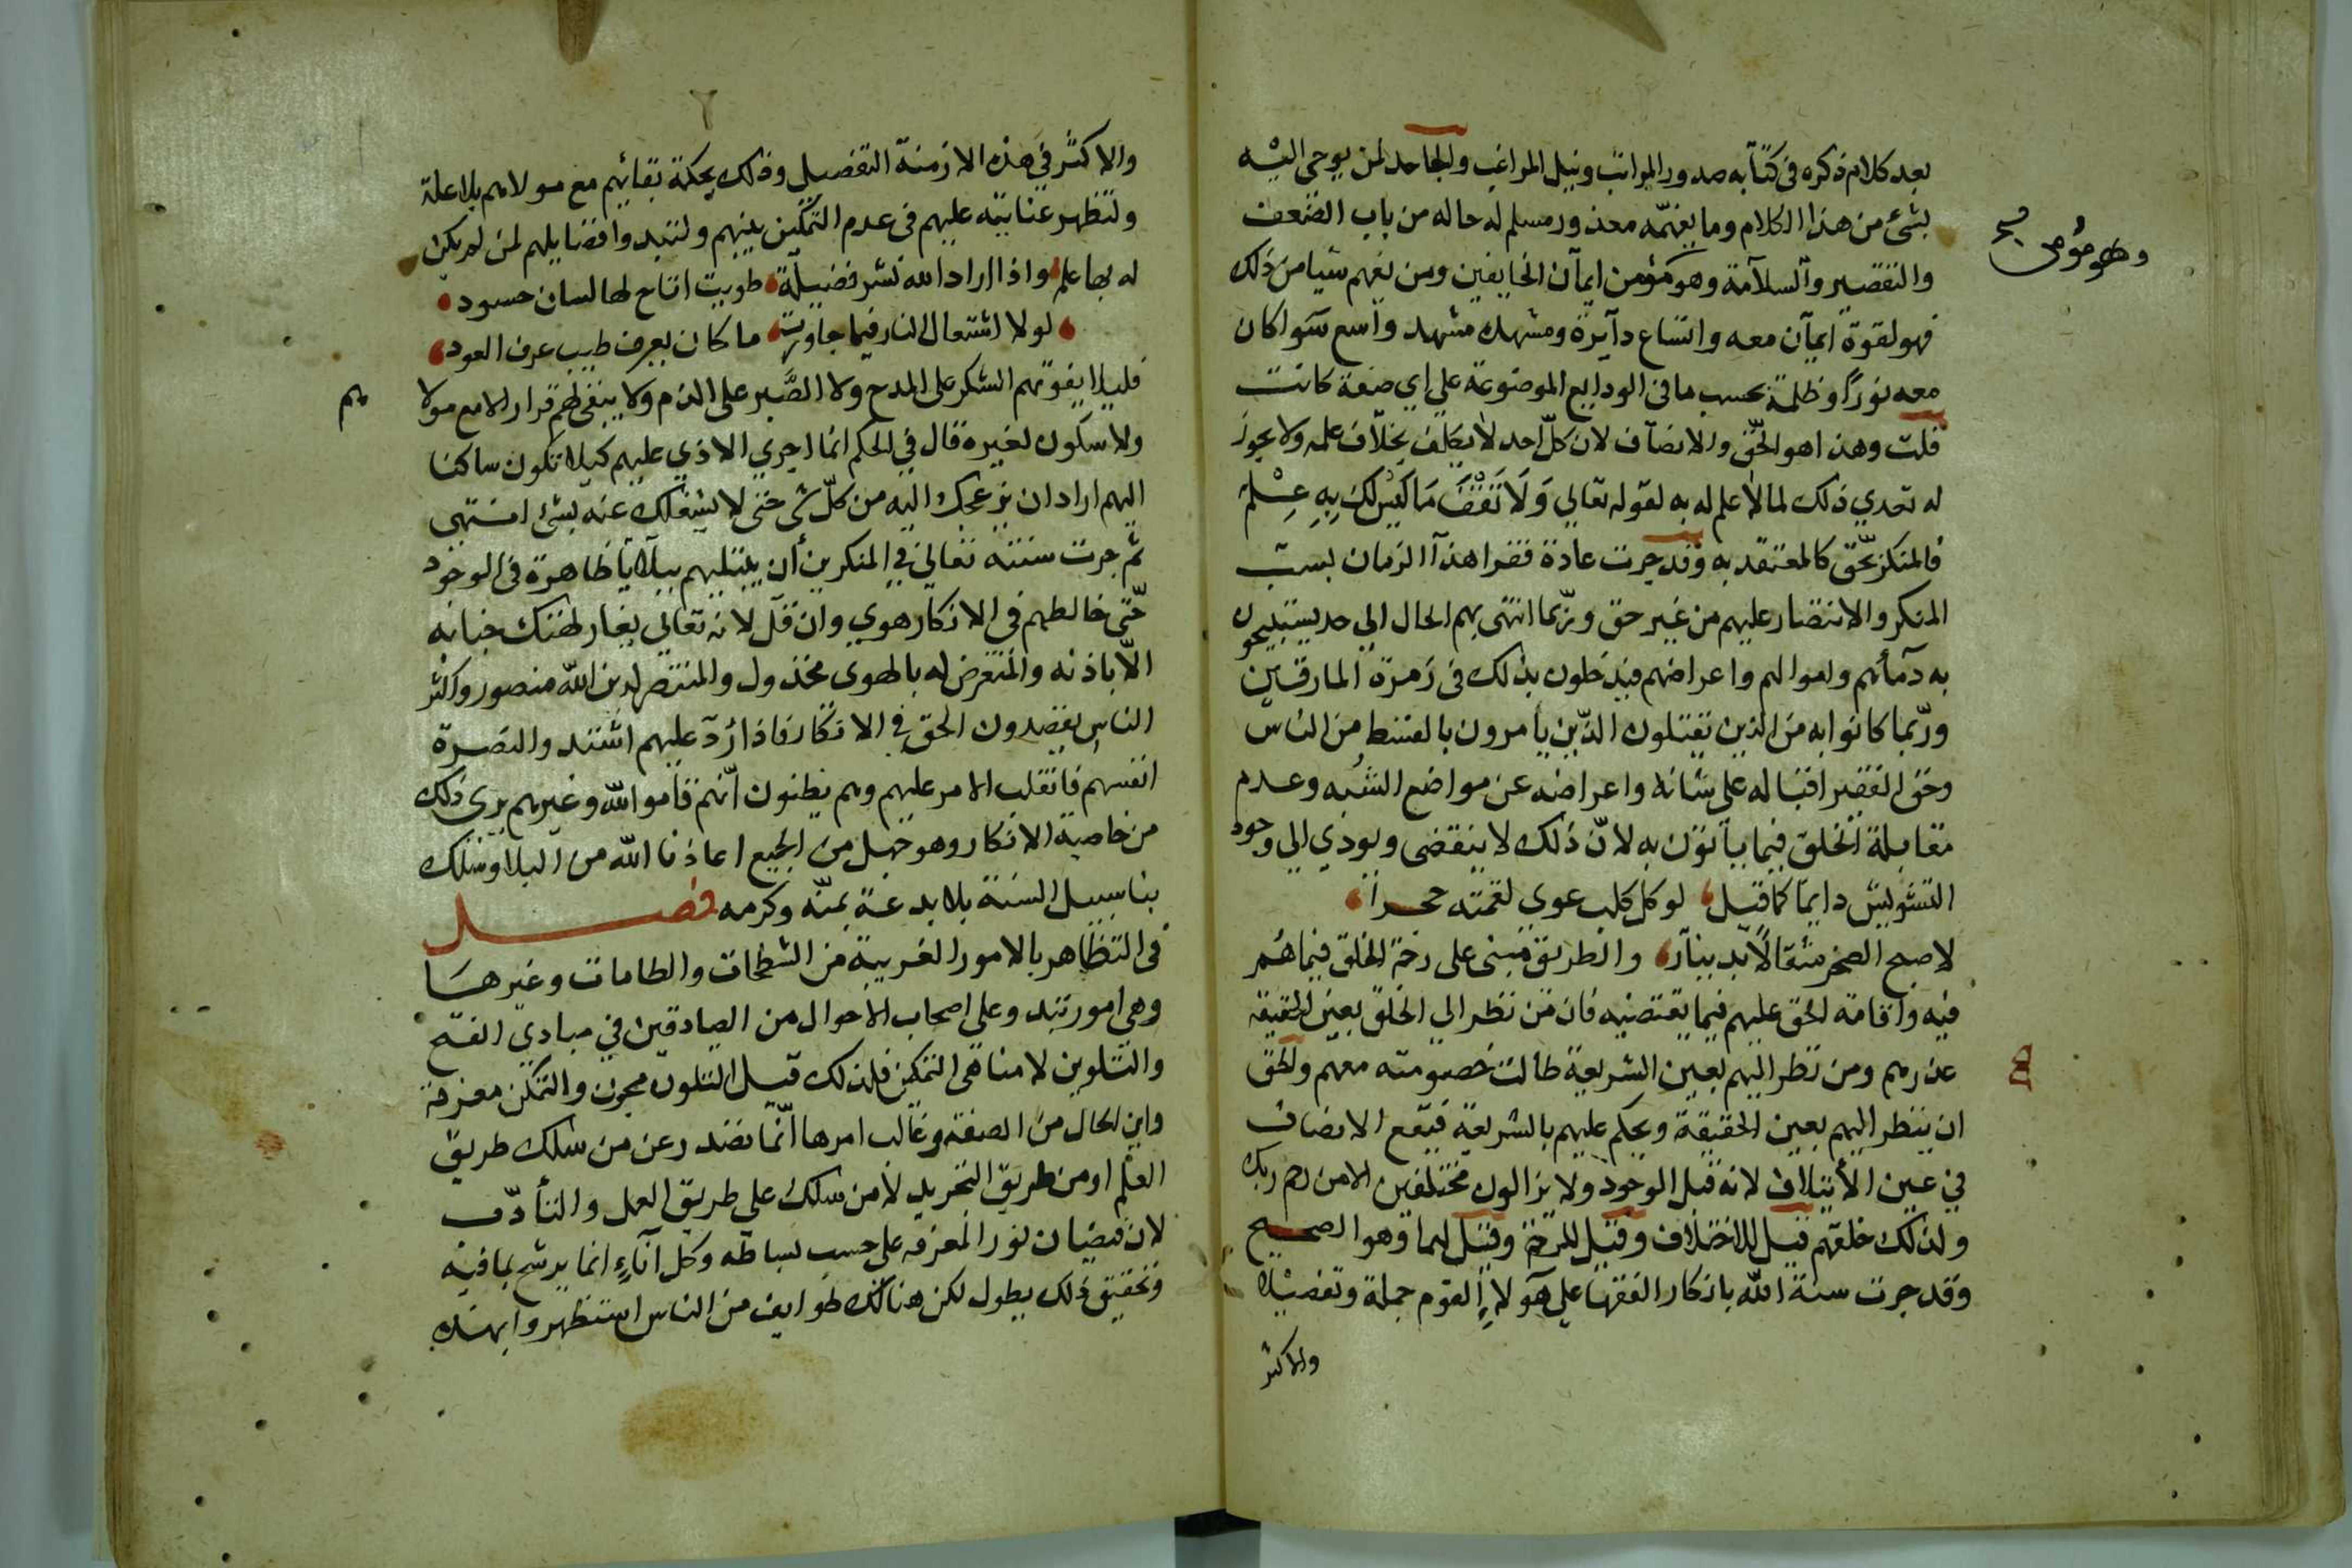 بعد كلام ذكره في كتابه صدور المراتب ونيل المراغب والجاحد لمن يوحى اليه
بشئ من هذا الكلام وما يفهمه معذور مسلم له حاله من باب الضعف
والتقصير والسلامة وهو مؤمن ايمان الخايفين ومن يفهم شيا من ذلك
وهو مؤمن صح
فهو لقوة ايمان معه واتساع دآيرة ومشهده مشهد واسع سوا كان
معه نورًا وظلمة بحسب ما في الودايع الموضوعة على اي صفة كانت
قلت وهذا هو الحق والانصاف لان كلّ احد لا يكلف بخلاف علمه ولا يجوز
له تعدي ذلك لما لا علم له به لقوله تعالي وَلَا تَقْفُ مَا لَيْسَ لَكَ بِهِ عِلْمٌ
فالمنكر بحّق كالمعتقد به وقد جرت عادة فقرا هذا الزمان بسبّ
المنكر والانتصار عليهم من غير حق وربّما انتهى بهم الحال الي حد يستبيحون
به دمآئهم واموالهم واعراضهم فيدخلون بذلك في زمرة المارقين
وربّما كانوا به من الذين يقتلون الذّين يأمرون بالقسط من الناس
وحق الفقير اقباله على شانه واعراضه عن مواضع الشُبه وعدم
مقابلة الخلق فيما يأتون به لانّ ذلك لا ينقضى ويوذي الي وجود
التشويش دايما كما قيل لو كل كلب عوى لقمته حجرا
لاصبح الصخر مثقالًا بدينار والطريق مبنى على رحمة الخلق فيما هُم
فيه واقامة الحق عليهم فيما يقتضيه فان من نظر الي الخلق بعين الحقيقة
عذرهم ومن نظر اليهم بعين الشريعة طالت خصومته معهم والحق
ان ينظر اليهم بعين الحقيقة ويحكم عليهم بالشريعة فيقع الانصاف
في عين الأيتلاف لانه قبل الوجود ولا يزالون مختلفين الا من رحم ربك
ولذلك خلقهم قيل للاختلاف وقيل للرحمة وقيل لهما وهو الصحيح
وقد جرت سنة الله بانكار الفقها علي هآولاءِ القوم جملة وتفصيلا
والاكثر
والاكثر في هذه الازمنة التفصيل وذلك بحكمة بقائهم مع مولاهم بلا علة
ولتظهر عنايته عليهم في عدم التمكين منهم ولتبدوا فضايلهم لمن لم يكن
له بها علم واذا اراد الله نشر فضيلة طويت اتاح لها لسان حسود
لولا اشتعال النار فيما جاورت ما كان يعرف طيب عرف العود
فليلا يفوتهم الشكر على المدح ولا الصَّبر على الذم ولا يبقى لهم قرار الا مع مولا
هم
ولا سكون لغيره قال في الحكم انما اجري الاذي عليهم كيلا تكون ساكنا
اليهم اراد ان يزعجك اليه من كلّ شى حتى لا يشغلك عنه بشئ انتهى
ثم جرت سنته تعالى في المنكرين أن يبتليهم ببلايا ظاهرة في الوجود
حّتى خالطهم في الانكار هوي وان قلّ لانه تعالي يغار لهتك جنابه
الّا باذنه والمتعرض له بالهوى مخذول والمنتصر لدين الله منصور واكثر
الناس يقصدون الحق في الانكار فاذا رُدّ عليهم اشتد والنصرة
انفسهم فانقلب الامر عليهم وهم يظنون أنّهم قاموا لله وغيرهم يرى ذلك
من خاصية الانكار وهو جهل من الجميع اعاذنا الله من البلا وسلك
بنا سبيل السنة بلا بدعة بمنّه وكرمه فصل
في التظاهر بالامور الغريبة من الشطحات والطامات وغيرهَا
وهي امور تبدو على اصحاب الاحوال من الصادقين في مبادي الفتح
والتلوين لا مناهى التمكين فلذلك قيل التلون مجون والتمكن معرفة
واين الحال من الصفة وغالب امرها انّما تصدر عن من سلك طريق
العلم او من طريق التجريد لا من سلك على طريق العمل والتأدّب
لان فيضان نور المعرفه على حسب بساطه وكل انآءٍ انما يرشح بما فيه
وتحقيق ذلك يطول لكن هنالك طوايف من الناس استظهروا بهذه